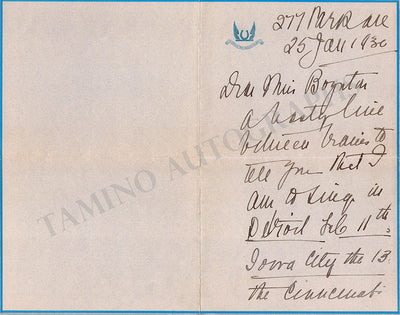 277 Park ave
25 Jan 1930
Dear Miss Boynton
A hasty line
between trains to
tell you that I
am to sing in
Detroit Feb 11th,
Iowa City the 13
the Cinncinati
TAMINO AUTOGRAPHS